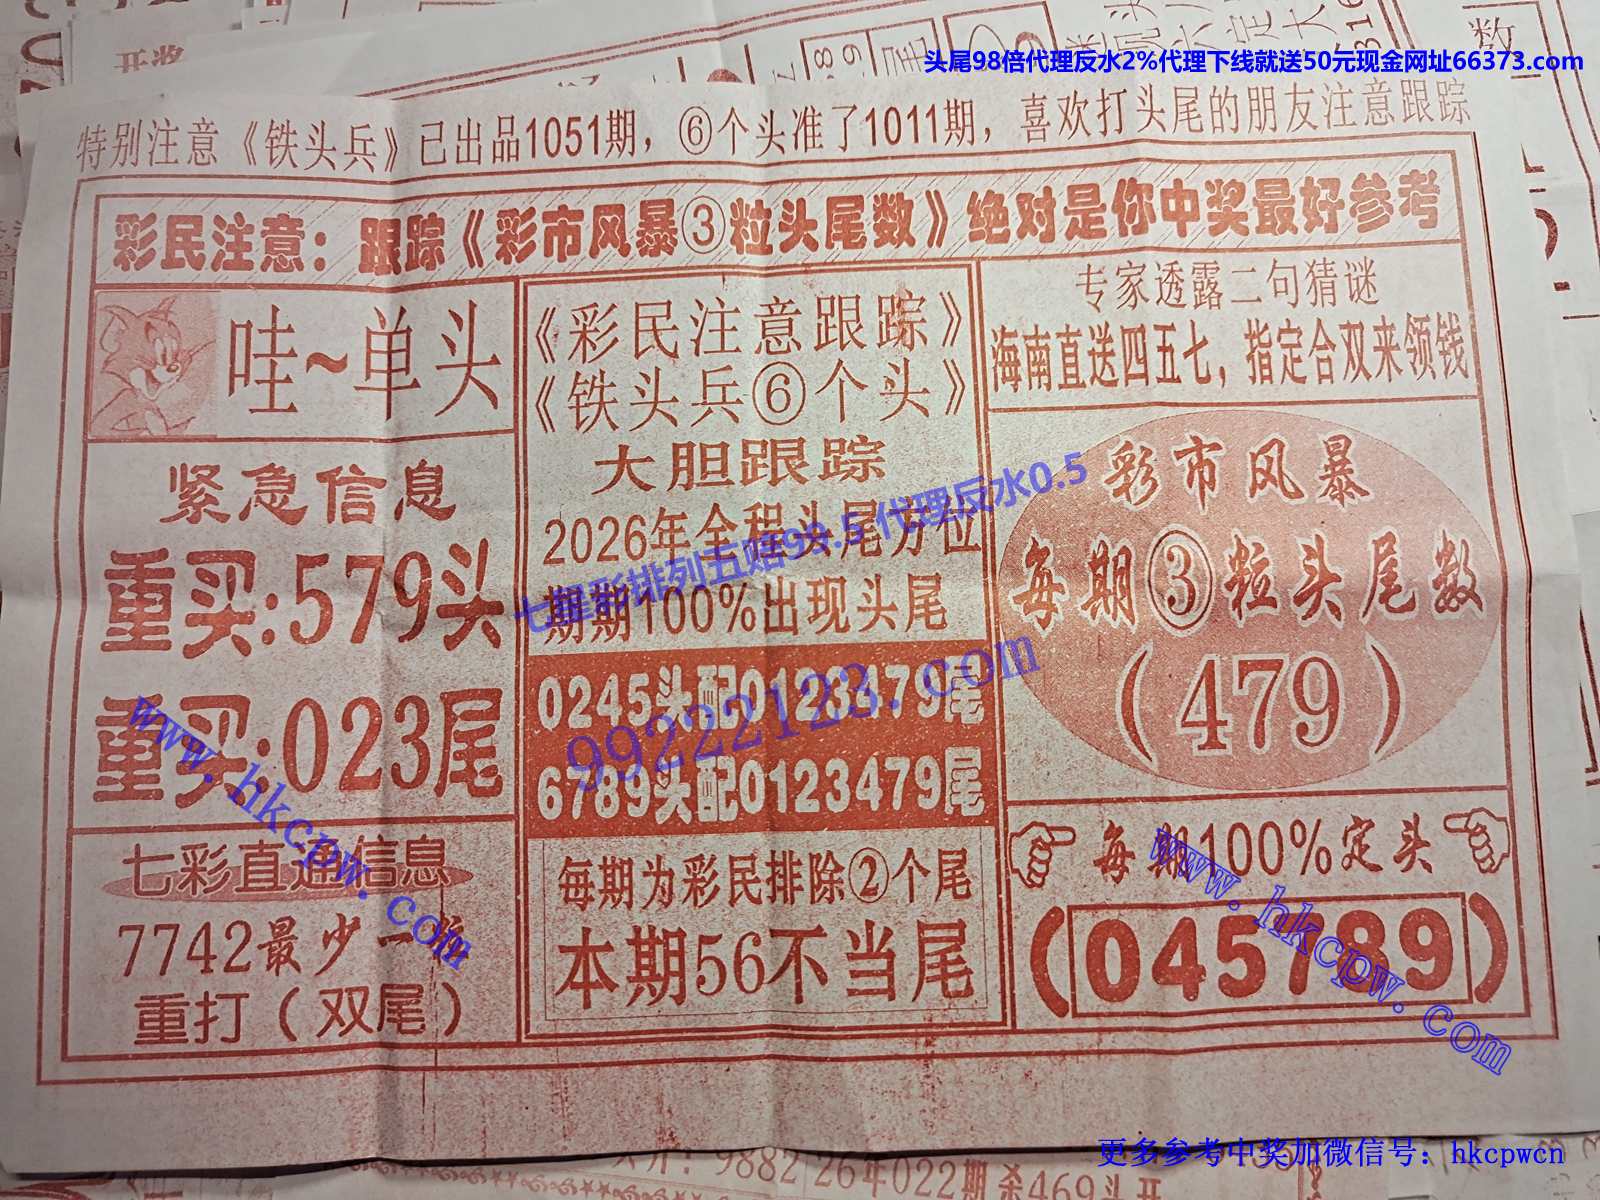 头尾98倍代理反水2%代理下线就送50元现金网址66373.com
特别注意《铁头兵》已出品1051期，⑥个头准了1011期，喜欢打头尾的朋友注意跟踪
彩民注意：跟踪《彩市风暴③粒头尾数》绝对是你中奖最好参考
哇~单头
紧急信息
重买:579头
重买:023尾
七彩直通信息
7742最少一个
重打（双尾）
《彩民注意跟踪》
《铁头兵⑥个头》
大胆跟踪
2026年全程头尾方位
期期100%出现头尾
0245头配0123479尾
6789头配0123479尾
每期为彩民排除②个尾
本期56不当尾
专家透露二句猜谜
海南直送四五七，指定合双来领钱
彩市风暴
每期③粒头尾数
（479）
每期100%定头
（045789）
七星彩排列五赔98.5 代理反水0.5
99222123.com
www.hkcpw.com
www.hkcpw.com
更多参考中奖加微信号：hkcpwcn
9882 26年022期杀469头开